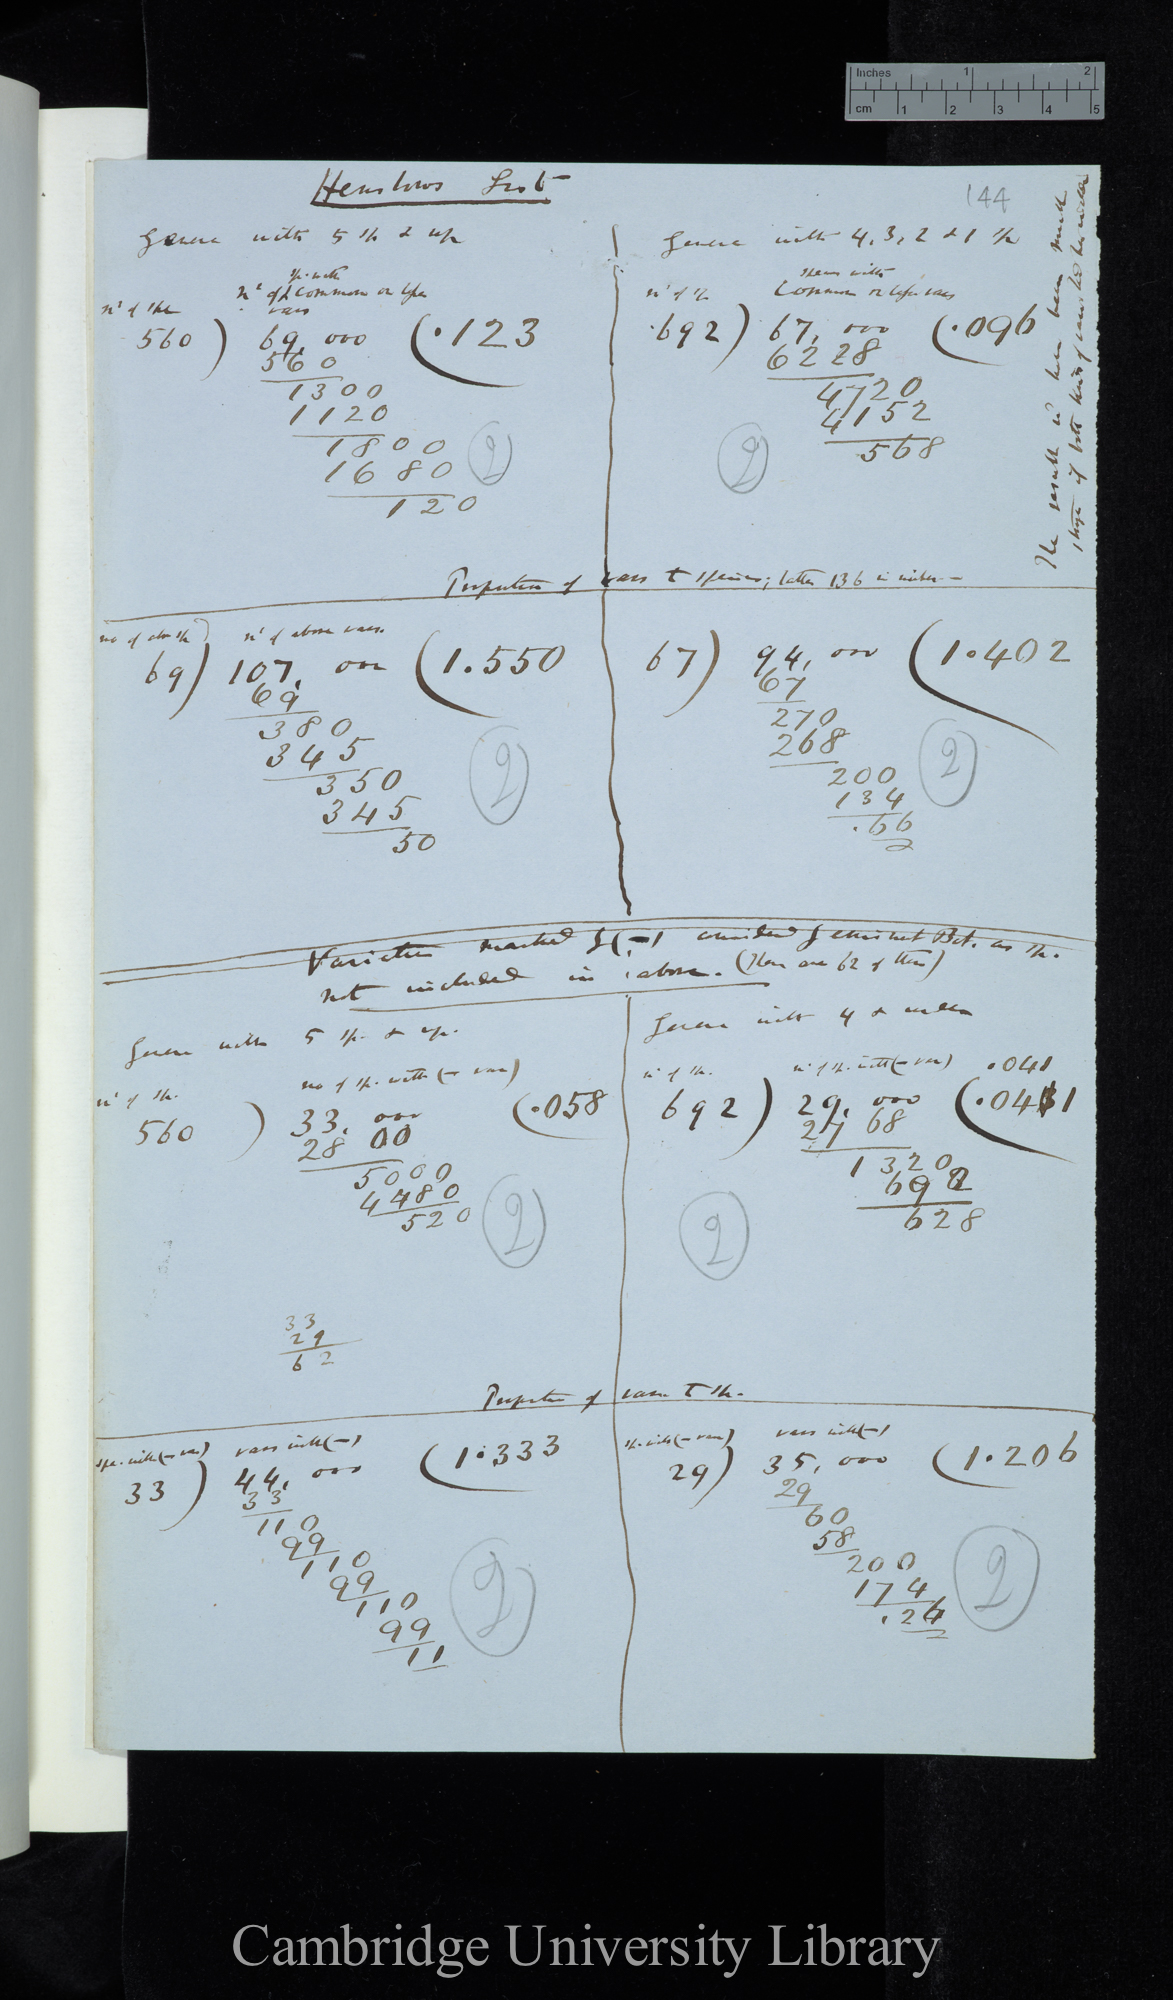 Inches 1 2
cm 1 2 3 4 5
144
Henslows List
Genera with 5 sp & up
sp. with
nº of common or like
vars
nº of sp
560 ) 69, 000 ( .123
560
1300
1120
1800
1680
120
2
Genera with 4, 3, 2 & 1 sp
species with
common or like vars
nº of sp
.692 ) 67, 000 ( .096
6228
4720
4152
568
2
The result would have been much
Proportion of vars to species; latter 136 in number—
no of above sp
nº of above vars.
69 ) 107, 000 ( 1.550
69
380
345
350
345
50
2
67 ) 94, 000 ( 1.402
67
270
268
200
134
.66
2
2
Varieties marked (—) considered by eminent Bot. as sp.
not included in above. (There are 62 of them)
Genera with 5 sp. & up.
nº of sp. no of sp. with (— var)
560 ) 33, 000 ( .058
28 00
5000
4480
520
2
Genera with 4 & under
nº of sp. nº of sp. with (— var) .041
692 ) 29, 000 ( .0411
27 68
1320
692
628
2
33
29
62
Proportion of vars to sp.
spe. with (— var) vars with (—)
33 ) 44, 000 ( 1.333
33
110
99
110
99
110
99
11
2
sp. with (— var) vars with (—)
29 ) 35, 000 ( 1.206
29
60
58
200
174
.26
2
2
Cambridge University Library